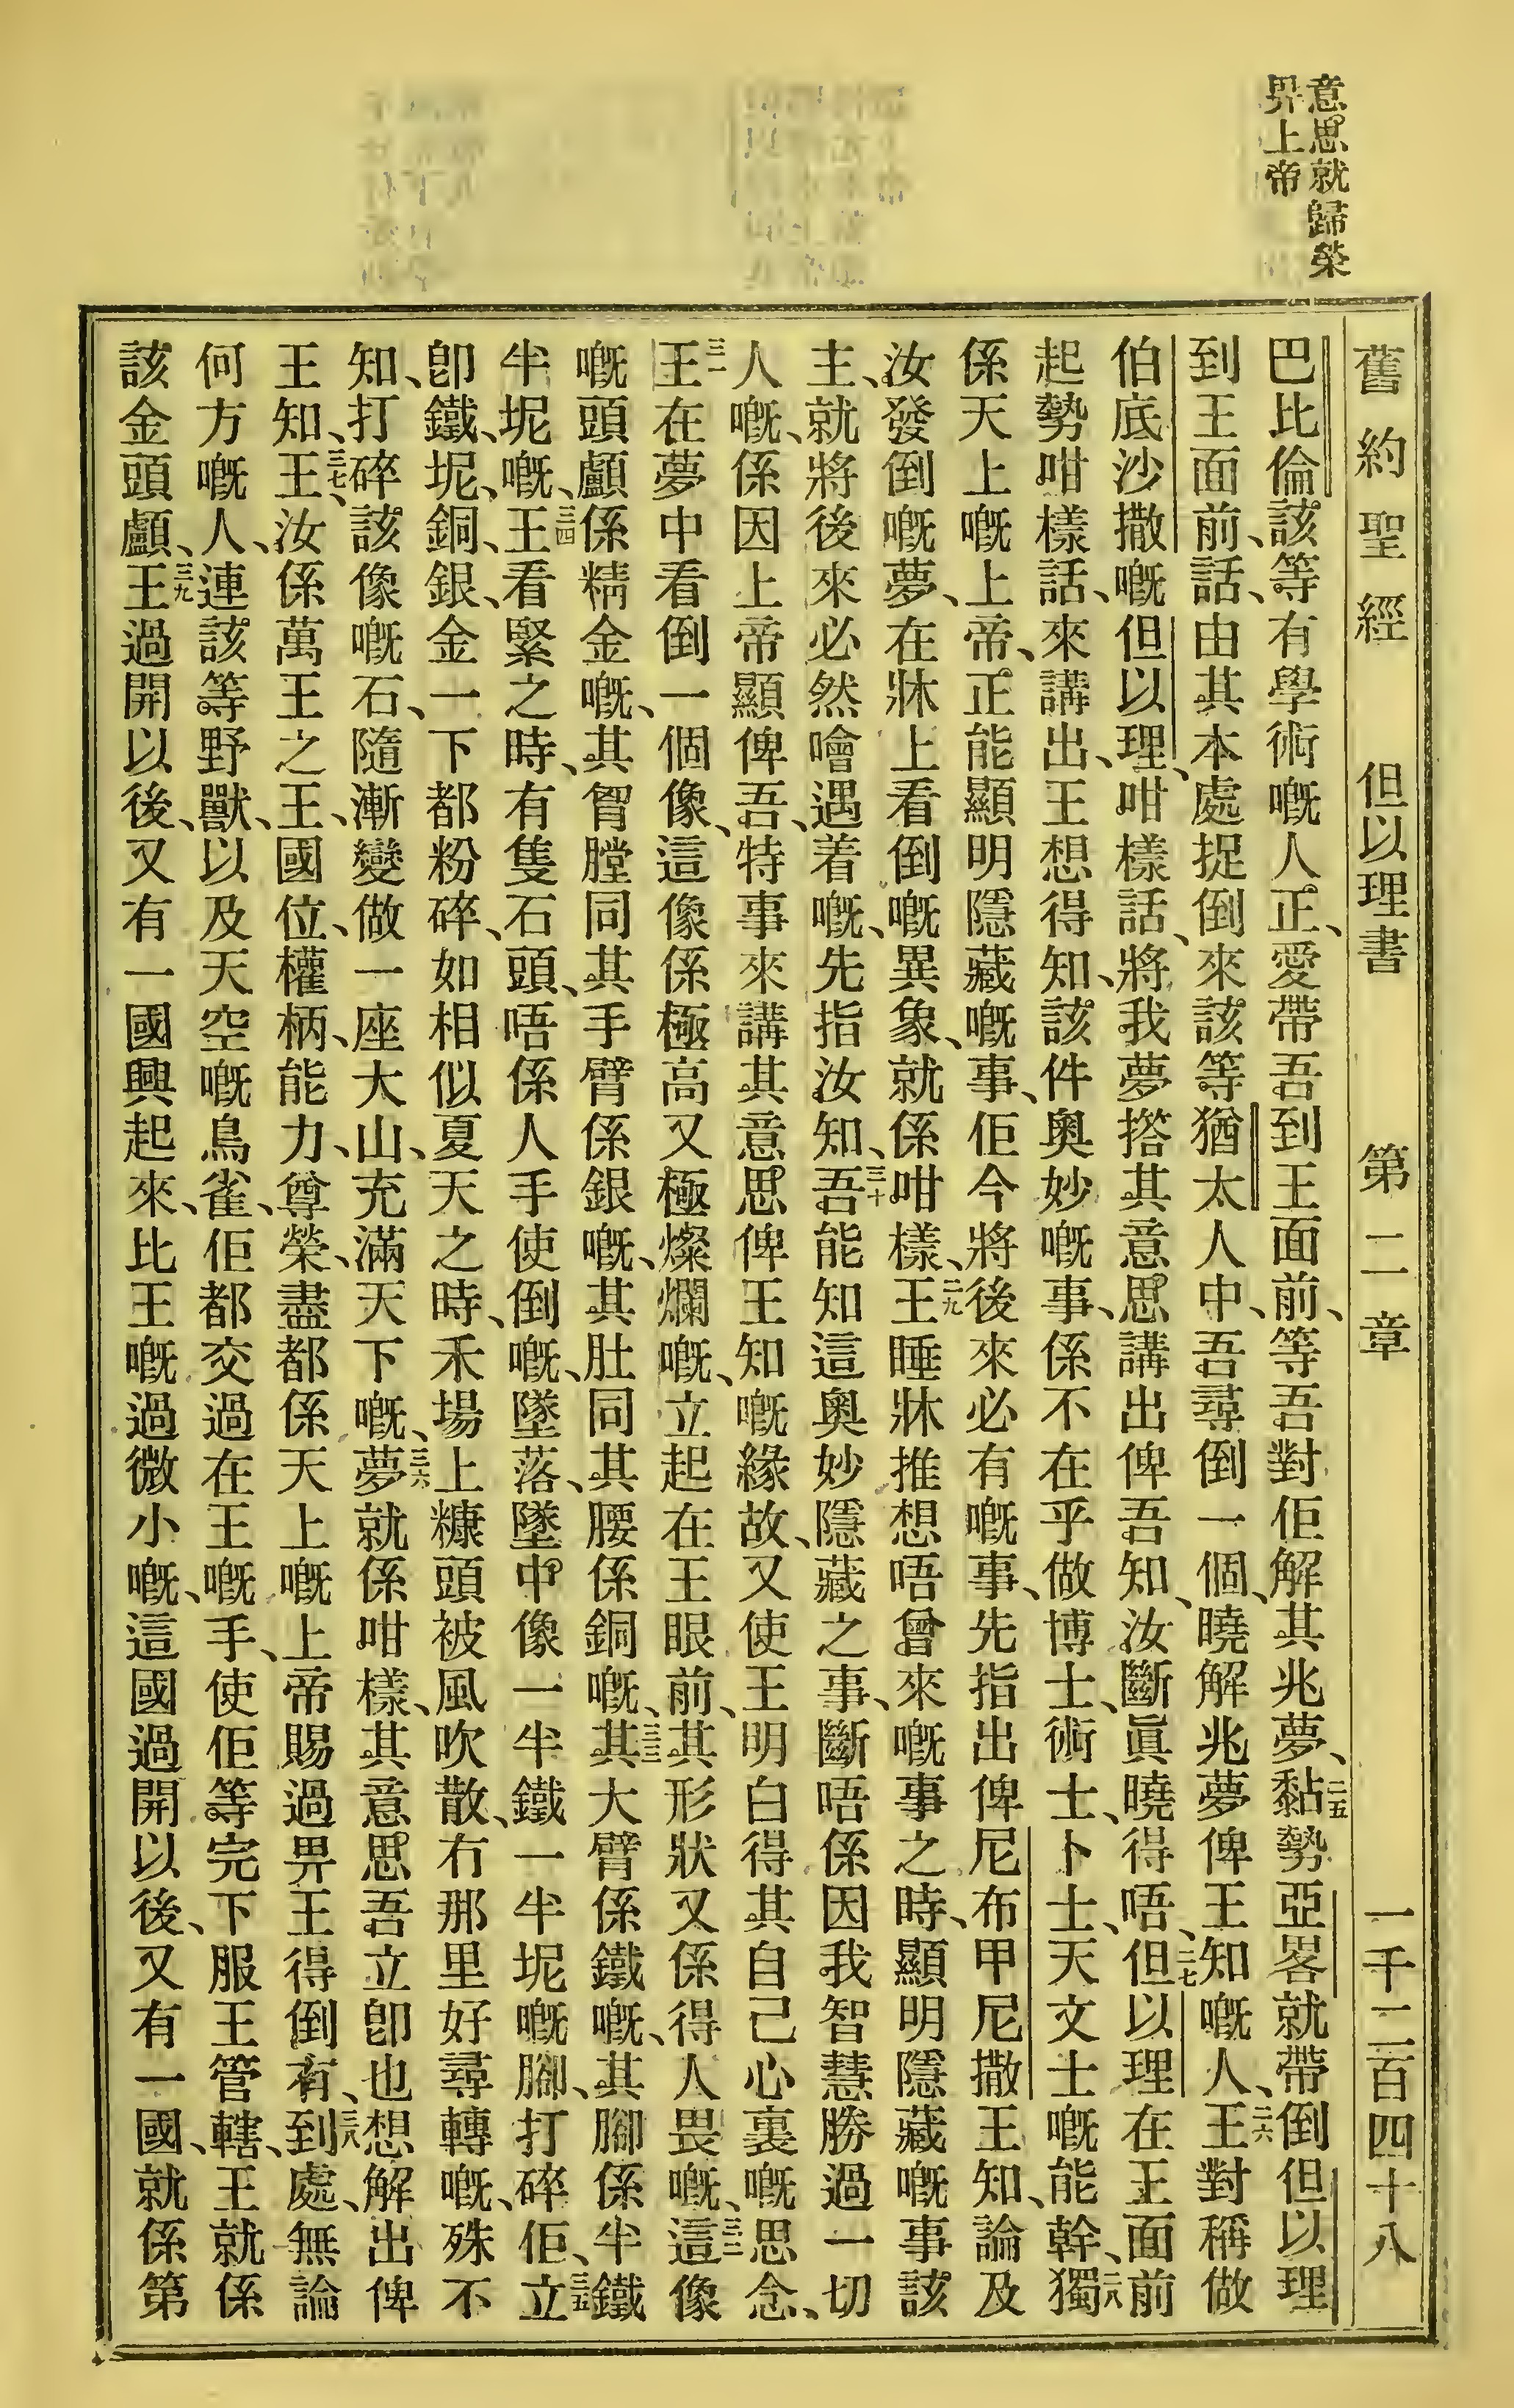 意思就歸榮
畀上帝
舊約聖經 但以理書 第二章 一千二百四十八
巴比倫該等有學術嘅人、正愛帶吾到王面前、等吾對佢解其兆夢、二五黏勢亞畧就帶倒但以理
到王面前、話、由其本處捉倒來該等猶太人中、吾尋倒一個、曉解兆夢俾王知嘅人、二六王對稱做
伯底沙撒嘅但以理、咁樣話、將我夢撘其意思講出俾吾知、汝斷眞曉得唔、二七但以理在王面前
起勢咁樣話、來講出、王想得知、該件奧妙嘅事、係不在乎做博士、術士、卜士、天文士嘅能幹、二八獨
係天上嘅上帝、正能顯明隱藏嘅事、佢今將後來必有嘅事、先指出俾尼布甲尼撒王知、論及
汝發倒嘅夢、在牀上看倒嘅異象、就係咁樣、二九王睡牀推想唔曾來嘅事之時、顯明隱藏嘅事該
主、就將後來必然噲遇着嘅、先指汝知、三十吾能知這奧妙隱藏之事、斷唔係因我智慧勝過一切
人嘅、係因上帝顯俾吾、特事來講其意思俾王知嘅緣故、又使王明白得其自己心裏嘅思念、
三一王在夢中看倒一個像、這像係極高又極燦爛嘅、立起在王眼前、其形狀又係得人畏嘅、三二這像
嘅頭顱係精金嘅、其胷膛同其手臂係銀嘅、其肚同其腰係銅嘅、三三其大臂係鐵嘅、其腳係半鐵
半坭嘅、三四王看緊之時、有隻石頭、唔係人手使倒嘅、墜落、墜中像一半鐵一半坭嘅腳、打碎佢、三五立
卽鐵、坭、銅、銀、金一下都粉碎、如相似夏天之時、禾場上糠頭被風吹散、冇那里好尋轉嘅、殊不
知、打碎該像嘅石、隨漸變做一座大山、充滿天下嘅、三六夢就係咁樣、其意思吾立卽也想解出俾
王知、三七王、汝係萬王之王、國位、權柄、能力、尊榮、盡都係天上嘅上帝賜過畀王得倒有、三八到處、無論
何方嘅人、連該等野獸、以及天空嘅鳥雀、佢都交過在王嘅手、使佢等完下服王管轄、王就係
該金頭顱、三九王過開以後、又有一國興起來、比王嘅過微小嘅、這國過開以後、又有一國、就係第